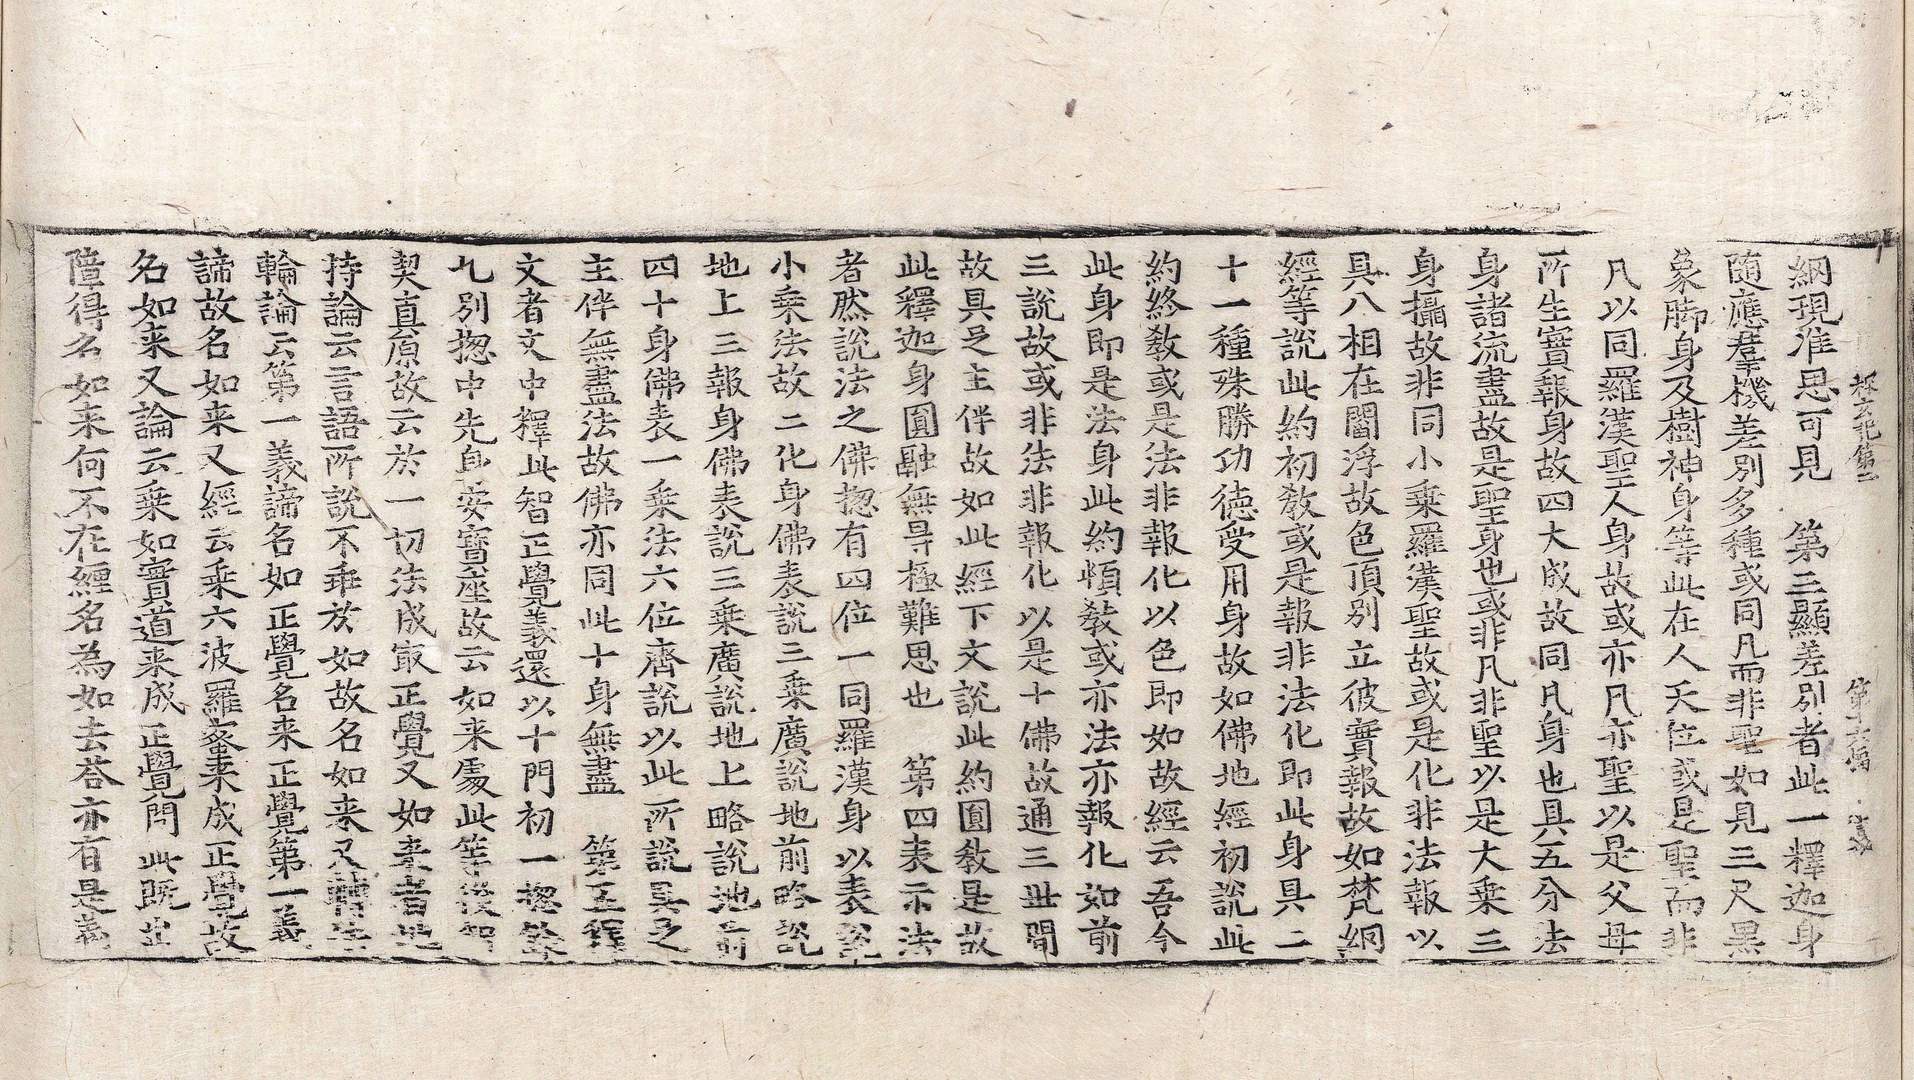 探玄記第二　第十六幅
網現准思可見　第三顯差別者此一釋迦身
隨應羣機差別多種或同凡而非聖如見三尺黑
象脚身及樹神身等此在人天位或是聖而非
凡以同羅漢聖人身故或亦凡亦聖以是父母
所生實報身故四大成故同凡身也具五分法
身諸流盡故是聖身也或非凡非聖以是大乘三
身攝故非同小乘羅漢聖故或是化非法報以
具八相在閻浮故色頂別立彼實報故如梵網
經等說此約初教或是報非法化即此身具二
十一種殊勝功德受用身故如佛地經初說此
約終教或是法非報化以色即如故經云吾今
此身即是法身此約頓教或亦法亦報化如前
三說故或非法非報化以是十佛故通三世間
故具足主伴故如此經下文說此約圓教是故
此釋迦身圓融無㝵極難思也　第四表示法
者然說法之佛揔有四位一同羅漢身以表說
小乘法故二化身佛表說三乘廣說地前略說
地上三報身佛表說三乘廣說地上略說地前
四十身佛表一乘法六位齊說以此所說具足
主伴無盡法故佛亦同此十身無盡　第五釋
文者文中釋此智正覺義還以十門初一揔餘
九別揔中先身安寶座故云如来處此等後智
契真原故云於一切法成㝡正覺又如来者地
持論云言語所說不乖於如故名如来又轉法
輪論云第一義諦名如正覺名来正覺第一義
諦故名如来又經云乘六波羅蜜来成正覺故
名如来又論云乘如實道来成正覺問此既出
障得名如来何不在纏名為如去荅亦有是義